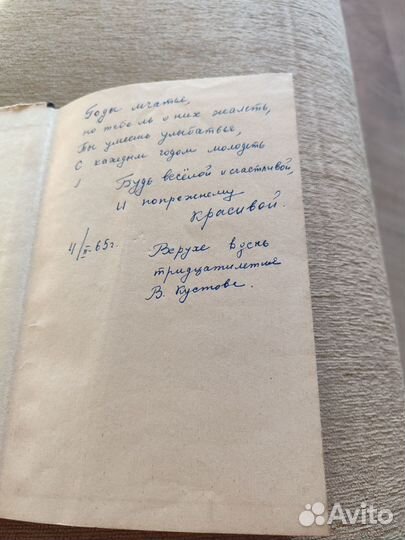 Годы мчатся,
но тебе ль о них жалеть,
Ты умеешь улыбаться,
С каждым годом молодеть
Будь весёлой и счастливой,
И попрежнему
красивой.
4/II-65г.
Верухе в день
тридцатилетия
В. Кустова.
Avito